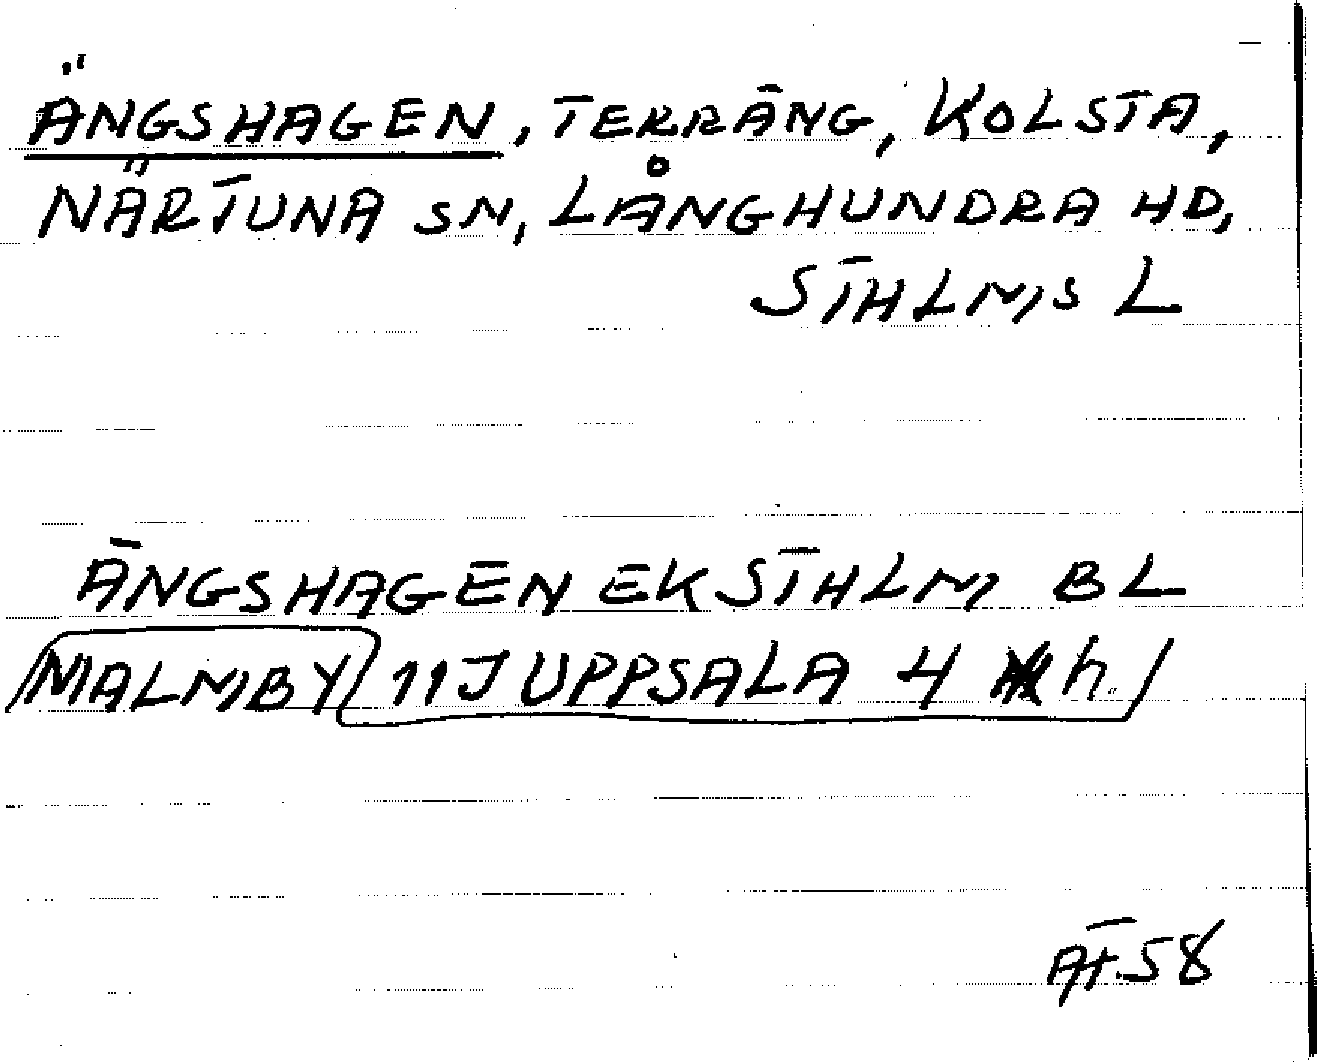 ÄNGSHAGEN, TERRÄNG, KOLSTA,
NÄRTUNA SN, LÅNGHUNDRA HD,
STHLMS L
ÄNGSHAGEN EK STHLM BL
MALMBY 11J UPPSALA 4 h.
AT.58